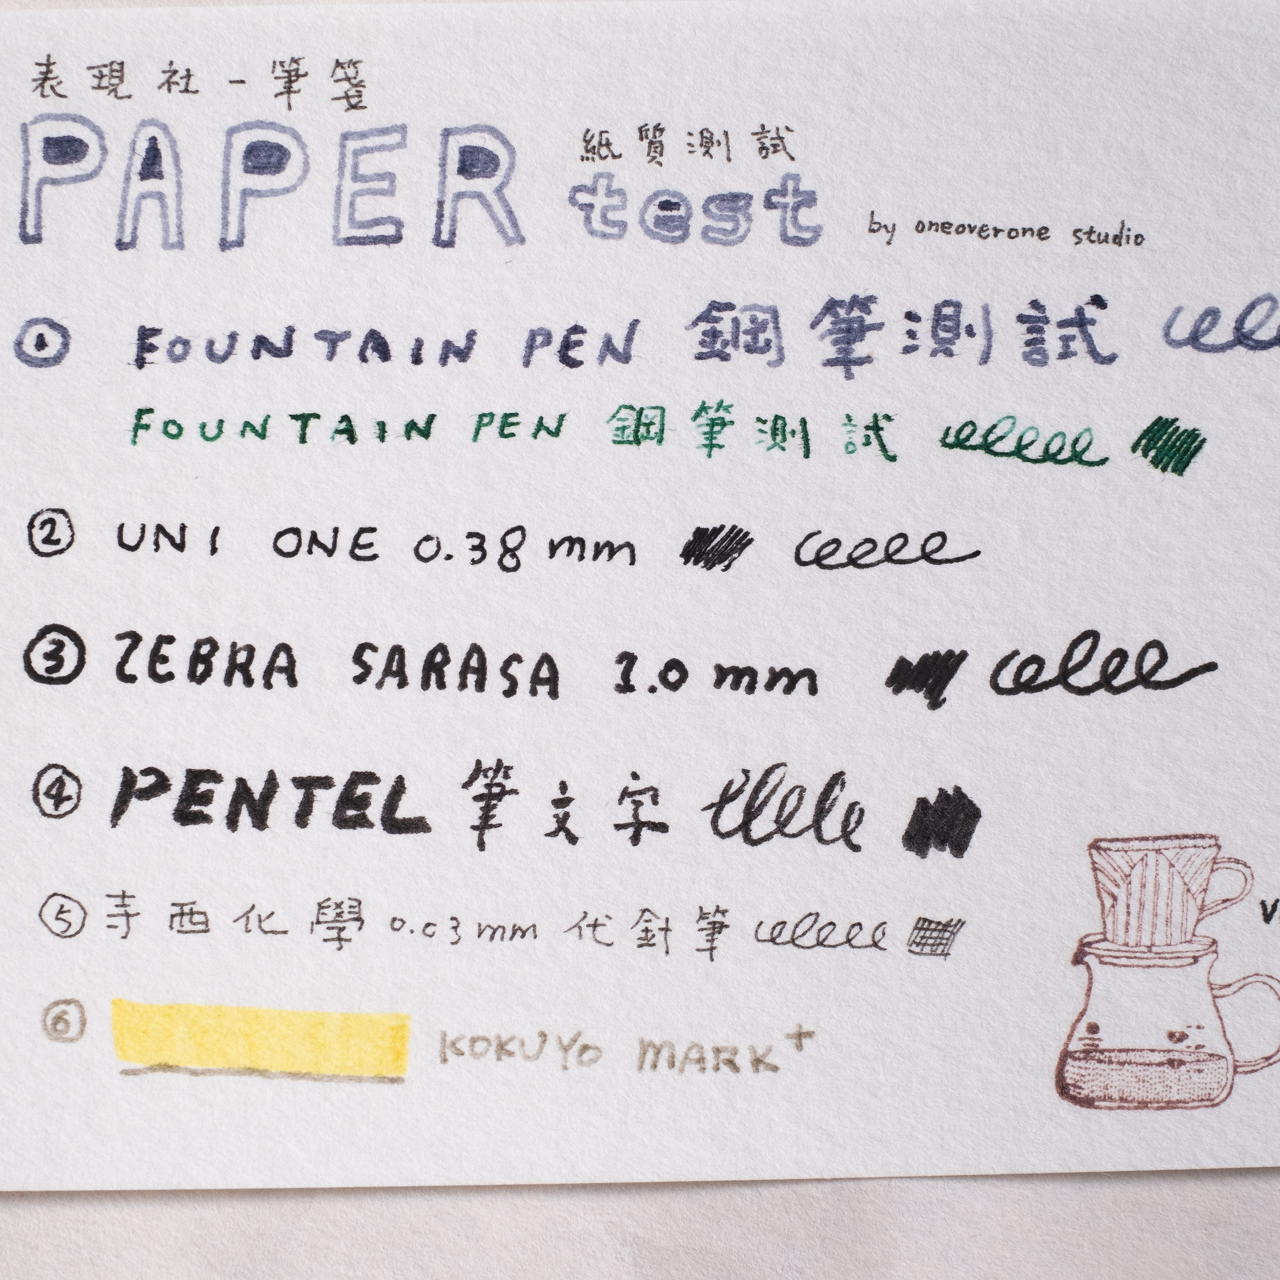 表現社-筆箋
PAPER 紙質測試 test by oneoverone studio
① FOUNTAIN PEN 鋼筆測試
FOUNTAIN PEN 鋼筆測試
② UNI ONE 0.38 mm
③ ZEBRA SARASA 1.0 mm
④ PENTEL 筆文字
⑤ 寺西化學 0.03mm 代針筆
⑥ KOKUYO MARK+